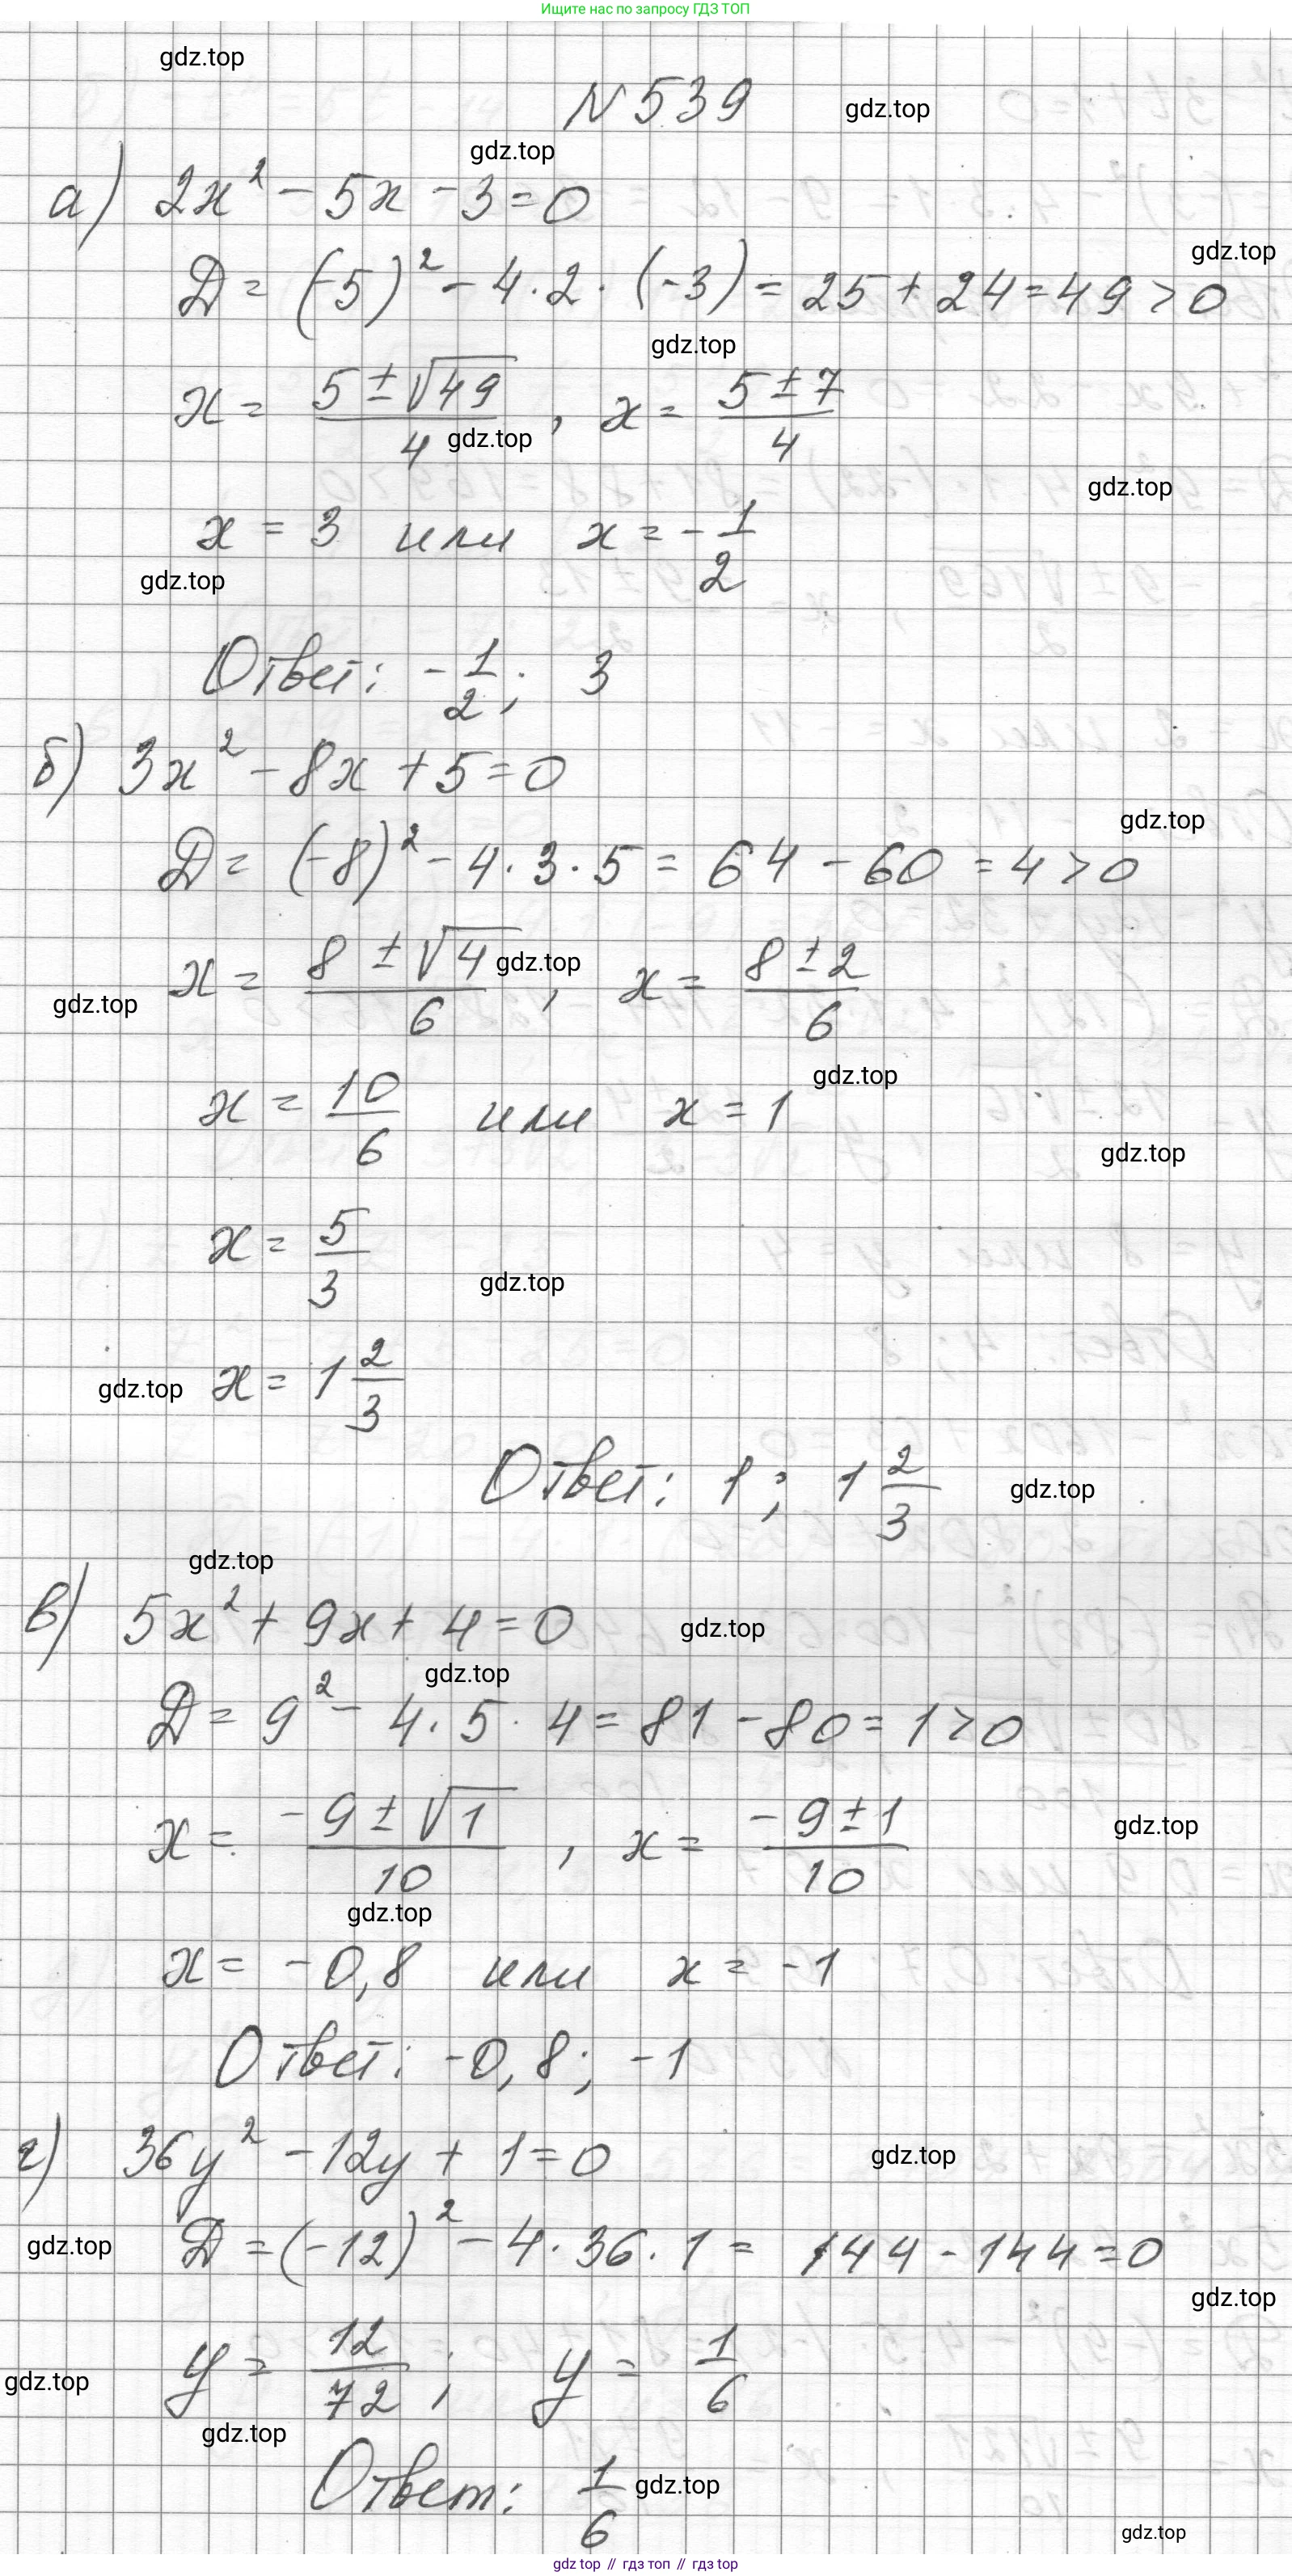 Ищите нас по запросу ГДЗ ТОП
gdz.top
N 539
gdz.top
gdz.top
а) 2x² - 5x - 3 = 0
gdz.top
Д = (-5)² - 4 · 2 · (-3) = 25 + 24 = 49 > 0
gdz.top
x = (5 ± √49)/4, x = (5 ± 7)/4
gdz.top
gdz.top
x = 3 или x = -1/2
gdz.top
Ответ: -1/2; 3
б) 3x² - 8x + 5 = 0
gdz.top
Д = (-8)² - 4 · 3 · 5 = 64 - 60 = 4 > 0
x = (8 ± √4)/6, x = (8 ± 2)/6
gdz.top
gdz.top
gdz.top
x = 10/6 или x = 1
gdz.top
x = 5/3
gdz.top
x = 1 2/3
gdz.top
Ответ: 1; 1 2/3
gdz.top
gdz.top
в) 5x² + 9x + 4 = 0
gdz.top
gdz.top
Д = 9² - 4 · 5 · 4 = 81 - 80 = 1 > 0
x = (-9 ± √1)/10, x = (-9 ± 1)/10
gdz.top
gdz.top
x = -0,8 или x = -1
Ответ: -0,8; -1
г) 36y² - 12y + 1 = 0
gdz.top
gdz.top
Д = (-12)² - 4 · 36 · 1 = 144 - 144 = 0
gdz.top
y = 12/72; y = 1/6
gdz.top
gdz.top
Ответ: 1/6
gdz.top
gdz.top
gdz top // гдз топ // gdz top